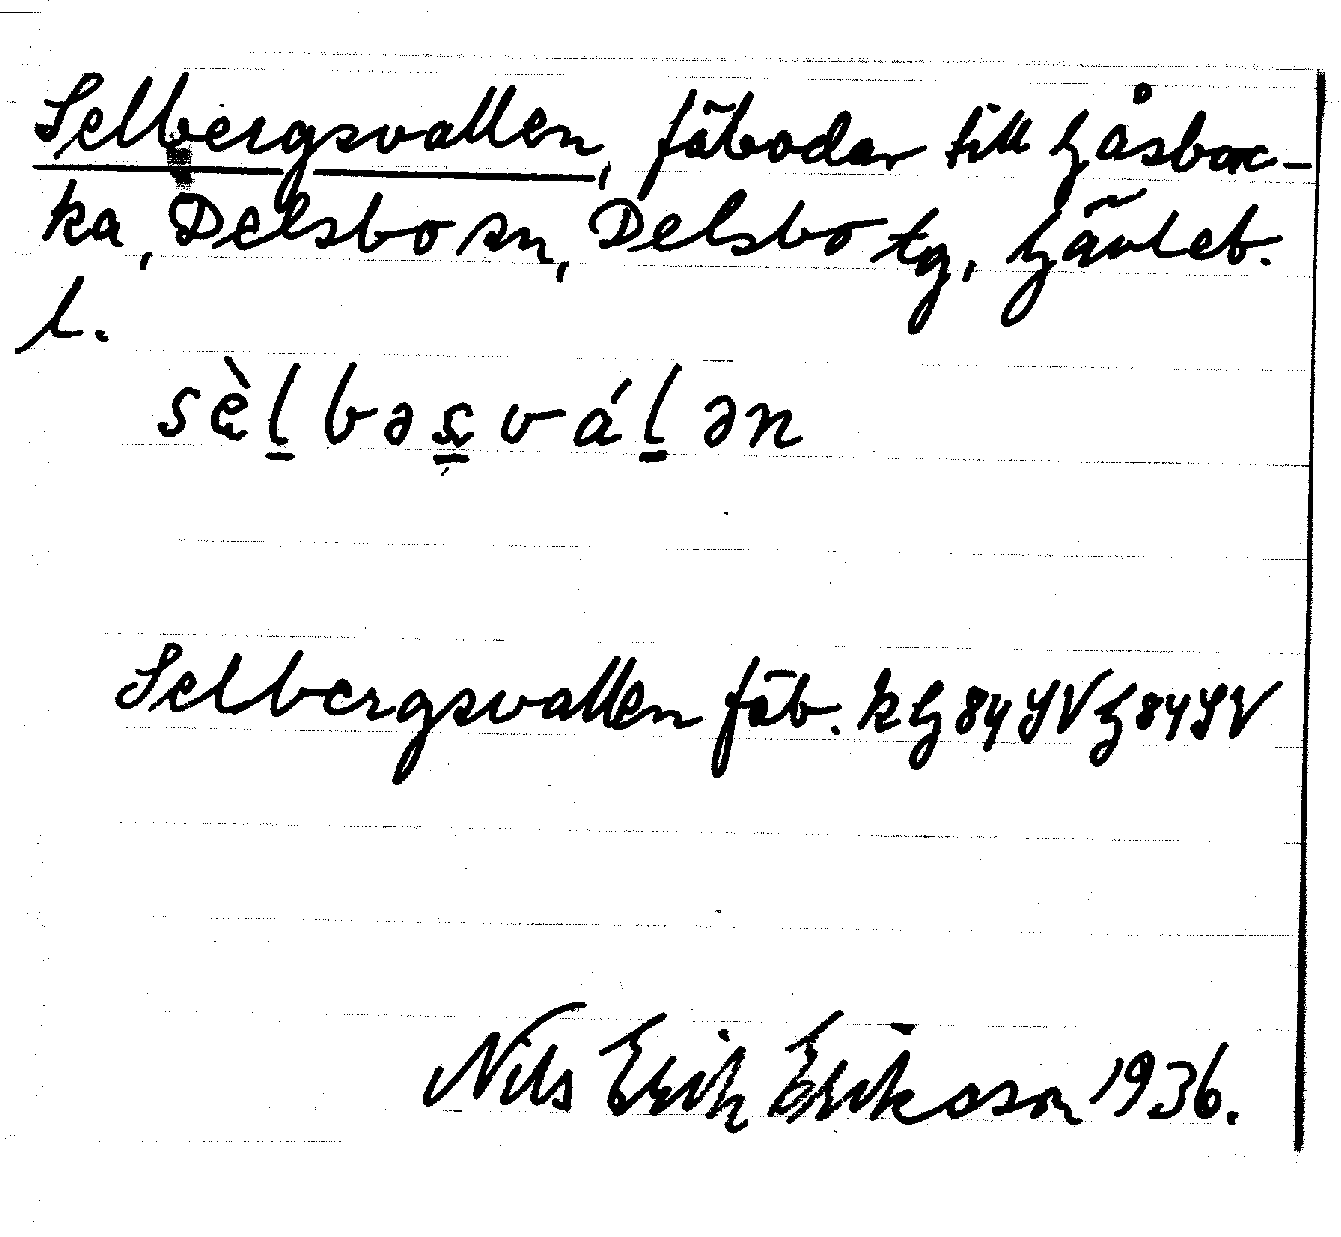 Selbergsvallen, fäbodar till Gåsbac-
ka, Delsbo sn, Delsbo tg, Gävleb.
l.
sèlbəsválən
Selbergsvallen fäb. k G 84 SV G 84 SV
Nils Erik Eriksson 1936.